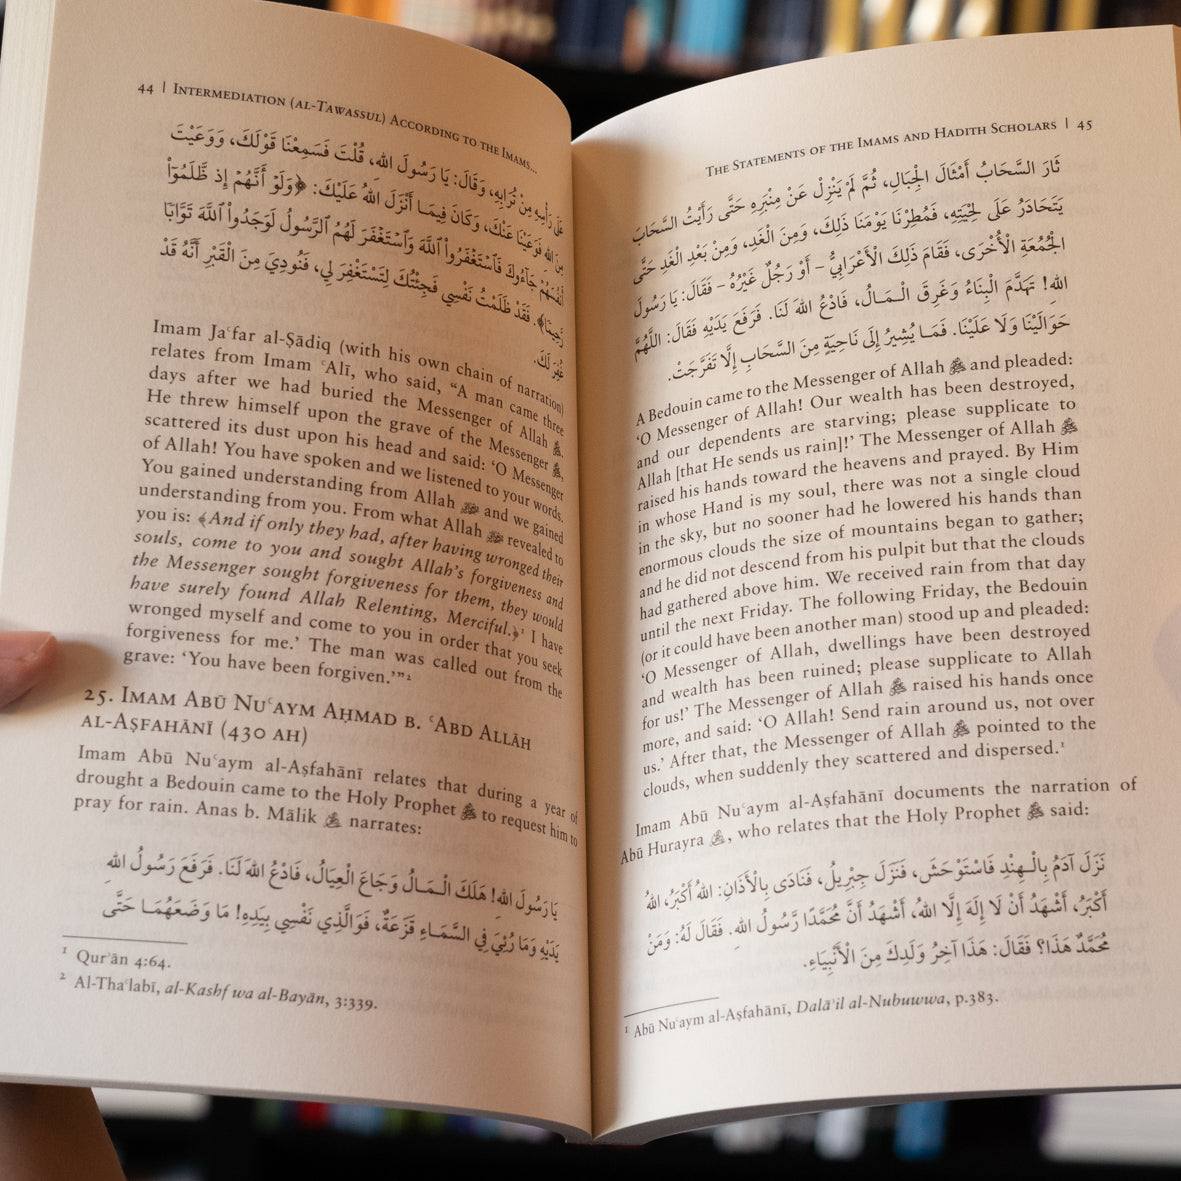 44 | Intermediation (al-Tawassul) According to the Imams...
عَلَى رَأْسِهِ مِنْ تُرَابِهِ، وَقَالَ: يَا رَسُولَ اللهِ، قُلْتَ فَسَمِعْنَا قَوْلَكَ، وَوَعَيْتَ
مِنَ اللهِ فَوَعَيْنَا عَنْكَ، وَكَانَ فِيمَا أَنْزَلَ اللهُ عَلَيْكَ: ﴿وَلَوْ أَنَّهُمْ إِذ ظَّلَمُوٓاْ
أَنفُسَهُمْ جَآءُوكَ فَٱسْتَغْفَرُواْ ٱللَّهَ وَٱسْتَغْفَرَ لَهُمُ ٱلرَّسُولُ لَوَجَدُواْ ٱللَّهَ تَوَّابًا
رَّحِيمًا﴾. فَقَدْ ظَلَمْتُ نَفْسِي فَجِئْتُكَ لِتَسْتَغْفِرَ لِي، فَنُودِيَ مِنَ الْقَبْرِ أَنَّهُ قَدْ
غُفِرَ لَكَ.
Imam Jaʿfar al-Ṣādiq (with his own chain of narration)
relates from Imam ʿAlī, who said, “A man came three
days after we had buried the Messenger of Allah ﷺ.
He threw himself upon the grave of the Messenger ﷺ,
scattered its dust upon his head and said: ‘O Messenger
of Allah! You have spoken and we listened to your words.
You gained understanding from Allah and we gained
understanding from you. From what Allah revealed to
you is: ﴾And if only they had, after having wronged their
souls, come to you and sought Allah’s forgiveness and
the Messenger sought forgiveness for them, they would
have surely found Allah Relenting, Merciful.﴿¹ I have
wronged myself and come to you in order that you seek
forgiveness for me.’ The man was called out from the
grave: ‘You have been forgiven.’”²
25. Imam Abū Nuʿaym Aḥmad b. ʿAbd Allāh
al-Aṣfahānī (430 AH)
Imam Abū Nuʿaym al-Aṣfahānī relates that during a year of
drought a Bedouin came to the Holy Prophet ﷺ to request him to
pray for rain. Anas b. Mālik narrates:
يَا رَسُولَ اللهِ! هَلَكَ الْمَالُ وَجَاعَ الْعِيَالُ، فَادْعُ اللهَ لَنَا. فَرَفَعَ رَسُولُ اللهِ
يَدَيْهِ وَمَا رُئِيَ فِي السَّمَاءِ قَزَعَةٌ، فَوَالَّذِي نَفْسِي بِيَدِهِ! مَا وَضَعَهُمَا حَتَّى
¹ Qurʾān 4:64.
² Al-Thaʿlabī, al-Kashf wa al-Bayān, 3:339.
The Statements of the Imams and Hadith Scholars | 45
ثَارَ السَّحَابُ أَمْثَالَ الْجِبَالِ، ثُمَّ لَمْ يَنْزِلْ عَنْ مِنْبَرِهِ حَتَّى رَأَيْتُ السَّحَابَ
يَتَحَادَرُ عَلَى لِحْيَتِهِ، فَمُطِرْنَا يَوْمَنَا ذَلِكَ، وَمِنَ الْغَدِ، وَمِنْ بَعْدِ الْغَدِ حَتَّى
الْجُمُعَةِ الْأُخْرَى، فَقَامَ ذَلِكَ الْأَعْرَابِيُّ – أَوْ رَجُلٌ غَيْرُهُ – فَقَالَ: يَا رَسُولَ
اللهِ! تَهَدَّمَ الْبِنَاءُ وَغَرِقَ الْمَالُ، فَادْعُ اللهَ لَنَا. فَرَفَعَ يَدَيْهِ فَقَالَ: اللَّهُمَّ
حَوَالَيْنَا وَلَا عَلَيْنَا. فَمَا يُشِيرُ إِلَى نَاحِيَةٍ مِنَ السَّحَابِ إِلَّا تَفَرَّجَتْ.
A Bedouin came to the Messenger of Allah ﷺ and pleaded:
‘O Messenger of Allah! Our wealth has been destroyed,
and our dependents are starving; please supplicate to
Allah [that He sends us rain]!’ The Messenger of Allah ﷺ
raised his hands toward the heavens and prayed. By Him
in whose Hand is my soul, there was not a single cloud
in the sky, but no sooner had he lowered his hands than
enormous clouds the size of mountains began to gather;
and he did not descend from his pulpit but that the clouds
had gathered above him. We received rain from that day
until the next Friday. The following Friday, the Bedouin
(or it could have been another man) stood up and pleaded:
‘O Messenger of Allah, dwellings have been destroyed
and wealth has been ruined; please supplicate to Allah
for us!’ The Messenger of Allah ﷺ raised his hands once
more, and said: ‘O Allah! Send rain around us, not over
us.’ After that, the Messenger of Allah ﷺ pointed to the
clouds, when suddenly they scattered and dispersed.¹
Imam Abū Nuʿaym al-Aṣfahānī documents the narration of
Abū Hurayra , who relates that the Holy Prophet ﷺ said:
نَزَلَ آدَمُ بِالْهِنْدِ فَاسْتَوْحَشَ، فَنَزَلَ جِبْرِيلُ، فَنَادَى بِالْأَذَانِ: اللهُ أَكْبَرُ، اللهُ
أَكْبَرُ، أَشْهَدُ أَنْ لَا إِلَهَ إِلَّا اللهُ، أَشْهَدُ أَنَّ مُحَمَّدًا رَسُولُ اللهِ. فَقَالَ لَهُ: وَمَنْ
مُحَمَّدٌ هَذَا؟ فَقَالَ: هَذَا آخِرُ وَلَدِكَ مِنَ الْأَنْبِيَاءِ.
¹ Abū Nuʿaym al-Aṣfahānī, Dalāʾil al-Nubuwwa, p.383.